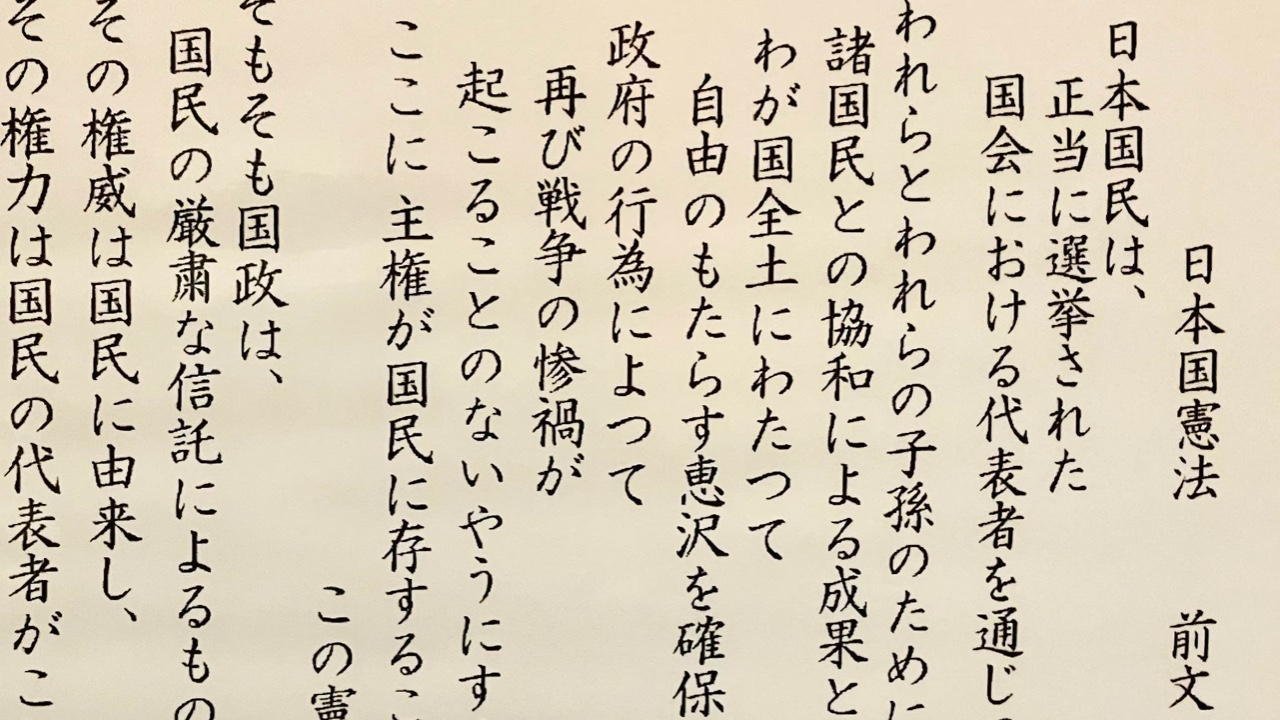 日本国憲法　前文
日本国民は、
正当に選挙された
国会における代表者を通じ
われらとわれらの子孫のために
諸国民との協和による成果と
わが国全土にわたつて
自由のもたらす恵沢を確保
政府の行為によつて
再び戦争の惨禍が
起こることのないやうにす
ここに 主権が国民に存するこ
この憲
そもそも国政は、
国民の厳粛な信託によるもの
その権威は国民に由来し、
その権力は国民の代表者がこ